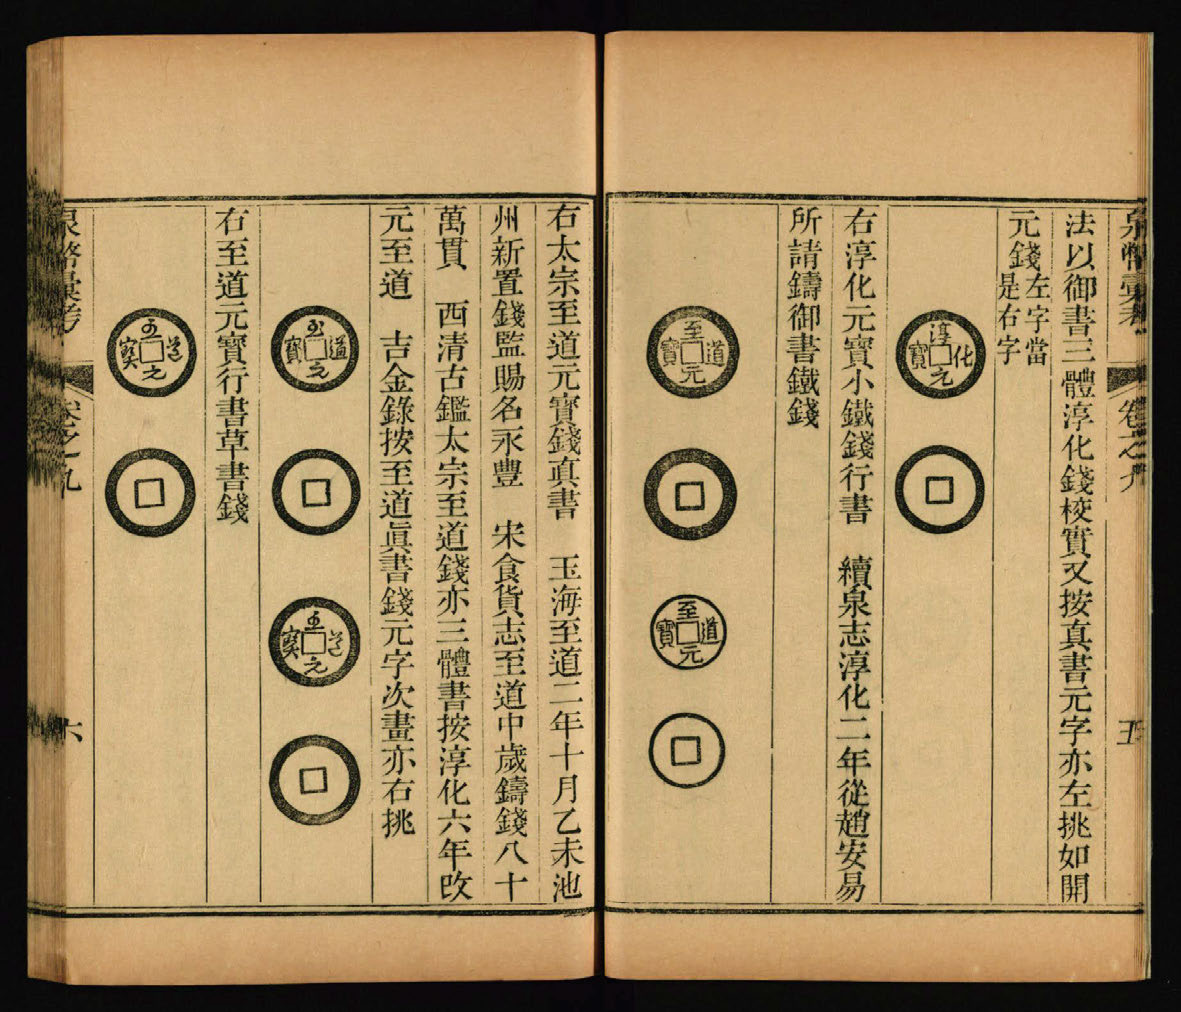 泉幣彙考 卷之九 五
法以御書三體淳化錢校實又按真書元字亦左挑如開
元錢左字當
是右字
淳化元寶
右淳化元寶小鐵錢行書 續泉志淳化二年從趙安易
所請鑄御書鐵錢
至道元寶
至道元寶
右太宗至道元寶錢真書 玉海至道二年十月乙未池
州新置錢監賜名永豐 宋食貨志至道中歲鑄錢八十
萬貫 西清古鑑太宗至道錢亦三體書按淳化六年改
元至道 吉金錄按至道眞書錢元字次畫亦右挑
至道元寶
至道元寶
右至道元寶行書草書錢
至道元寶
泉幣彙考 卷之九 六